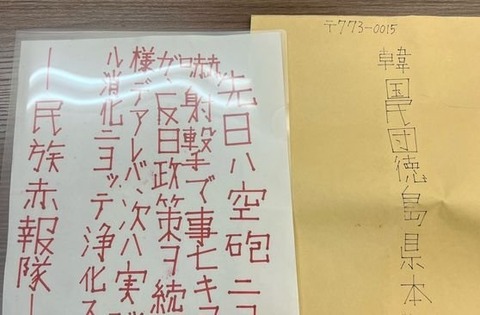 〒773-0015
韓国民団徳島県本
先日ハ空砲ニヨ
嚇射撃で事ナキヲ
が、反日政策ヲ続
様デアレバ、次ハ実
ル消化ニヨッテ浄化ス
ー民族赤報隊ー